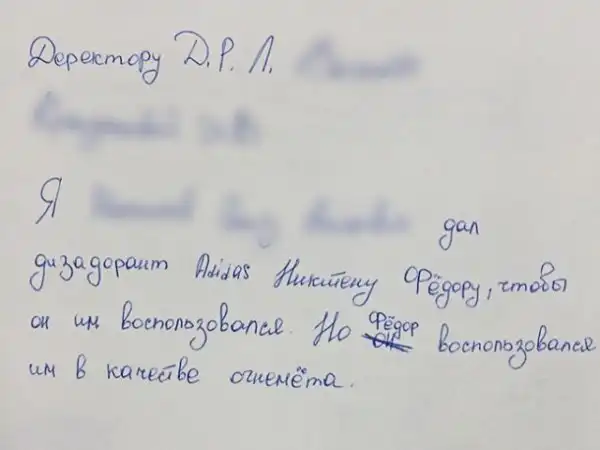 Деректору Д.Р.Л.
Я дал
дизадорант Adidas Никитену Фёдору, чтобы
он им воспользовался. Но Фёдор воспользовался
им в качестве огнемёта.